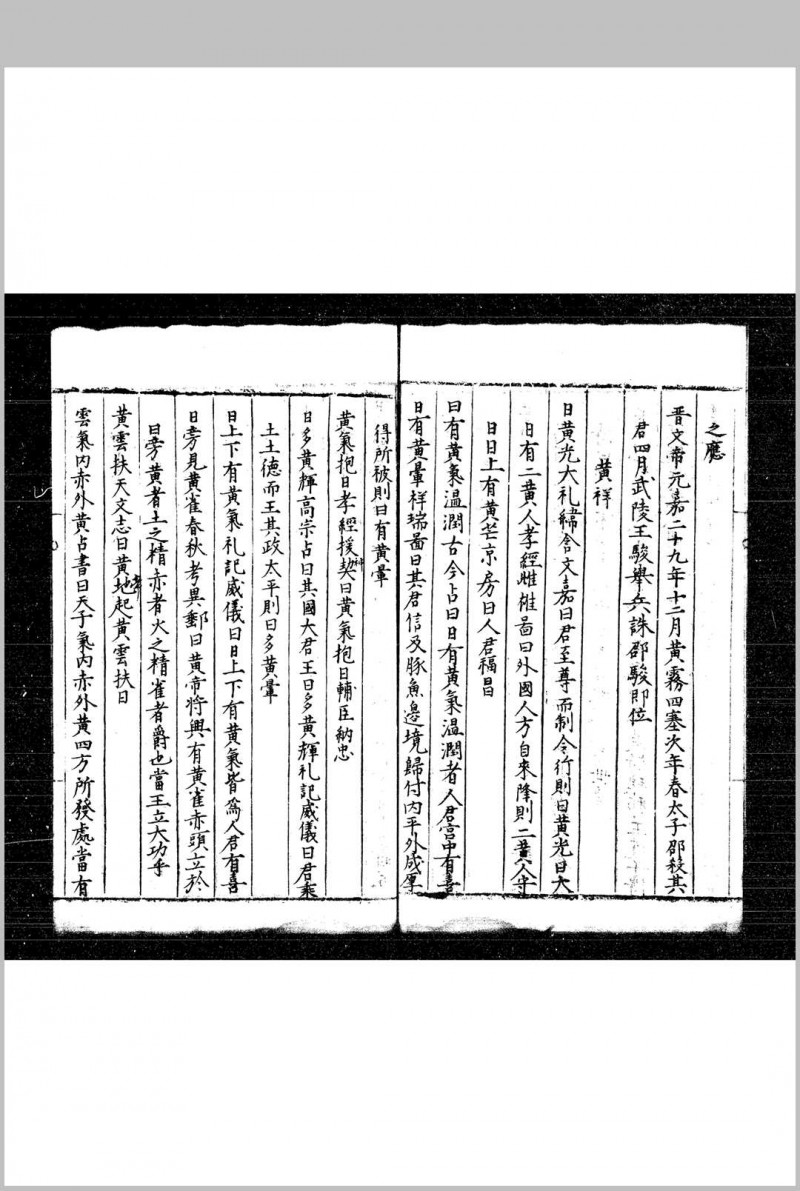 之應
晋文帝元嘉二十九年十二月黄霧四塞次年春太子邵殺其
君四月武陵王駿舉兵誅邵駿即位
黄祥
日黄光大礼緯含文嘉曰君至尊而制令行則日黄光日大
日有二黄人孝經雌雄啚曰外國人方自來降則二黄人守
日日上有黄芒京房曰人君福昌
日有黄氣温潤古今占曰日有黄氣温潤者人君宫中有喜
日有黄暈祥瑞啚曰其君信及豚魚邉境歸付内平外成厚
得所被則日有黄暈
黄氣抱日孝經援神契曰黄氣抱日輔臣納忠
日多黄輝高宗占曰其國大君王日多黄輝礼記威儀曰君乘
土土德而王其政太平則日多黄暈
日上下有黄氣礼記威儀曰日上下有黄氣皆為人君有喜
日旁見黄雀春秋考異郵曰黄帝将興有黄雀赤頭立於
日旁黄者土之精赤者火之精雀者爵也當王立大功乎
黄雲扶天文志曰黄地起黄雲扶日
雲氣内赤外黄占書曰天子氣内赤外黄四方所發處當有